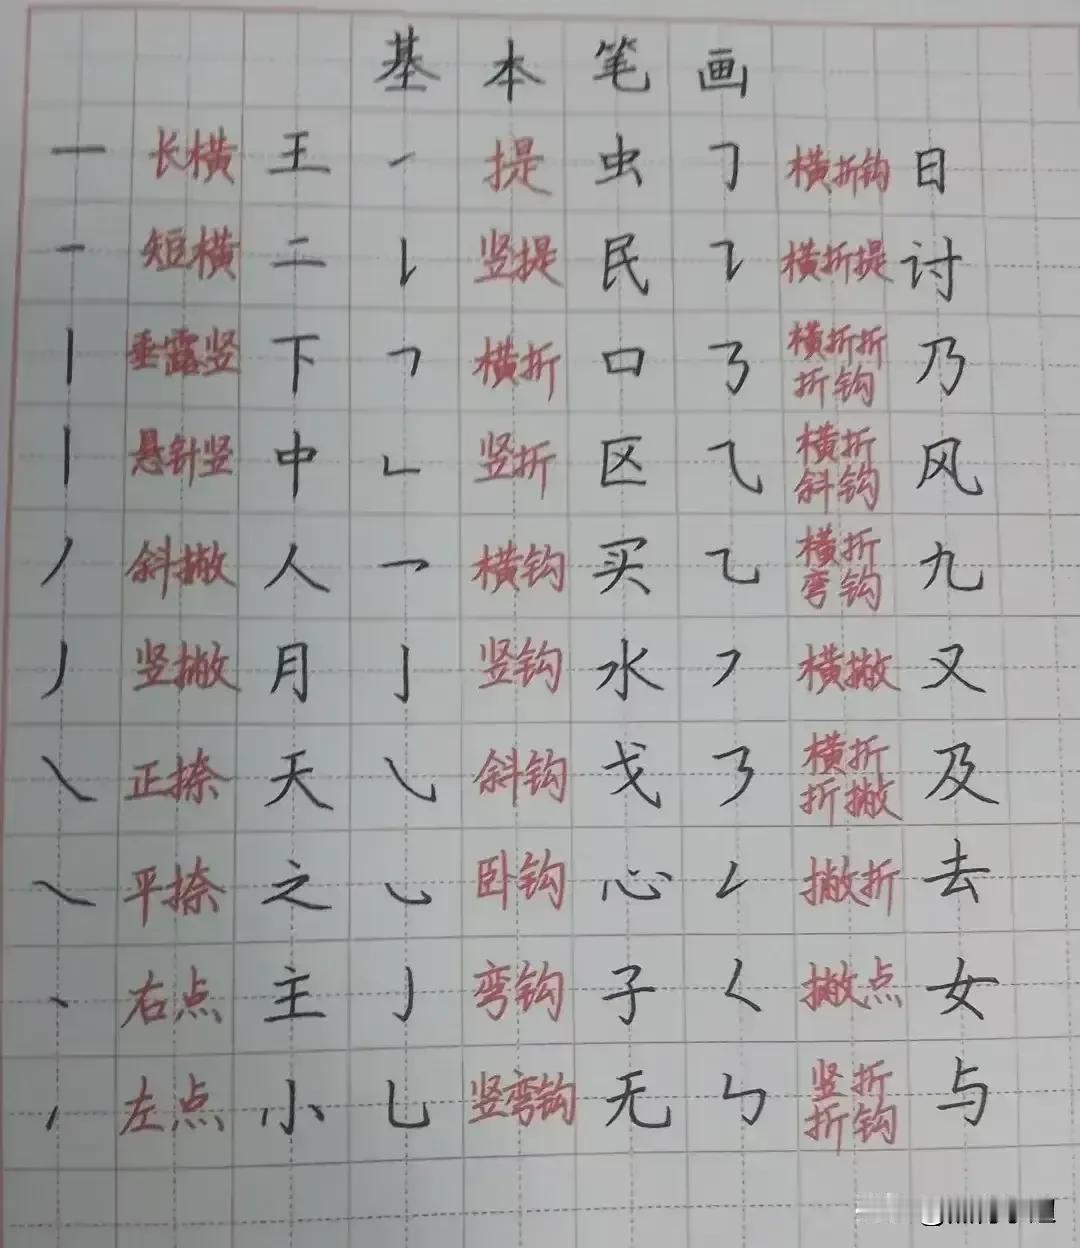 基本笔画
一 长横 王 ㇀ 提 虫 ㇆ 横折钩 日
一 短横 二 ㇙ 竖提 民 ㇊ 横折提 讨
丨 垂露竖 下 ㇕ 横折 口 ㇡ 横折折折钩 乃
丨 悬针竖 中 ㇗ 竖折 区 ⺄ 横折斜钩 风
丿 斜撇 人 ㇖ 横钩 买 ㇈ 横折弯钩 九
丿 竖撇 月 亅 竖钩 水 ㇇ 横撇 又
㇏ 正捺 天 ㇂ 斜钩 戈 ㇋ 横折折撇 及
㇏ 平捺 之 ㇃ 卧钩 心 ㇜ 撇折 去
丶 右点 主 ㇁ 弯钩 子 ㇛ 撇点 女
㇒ 左点 小 乚 竖弯钩 无 ㇉ 竖折折钩 与